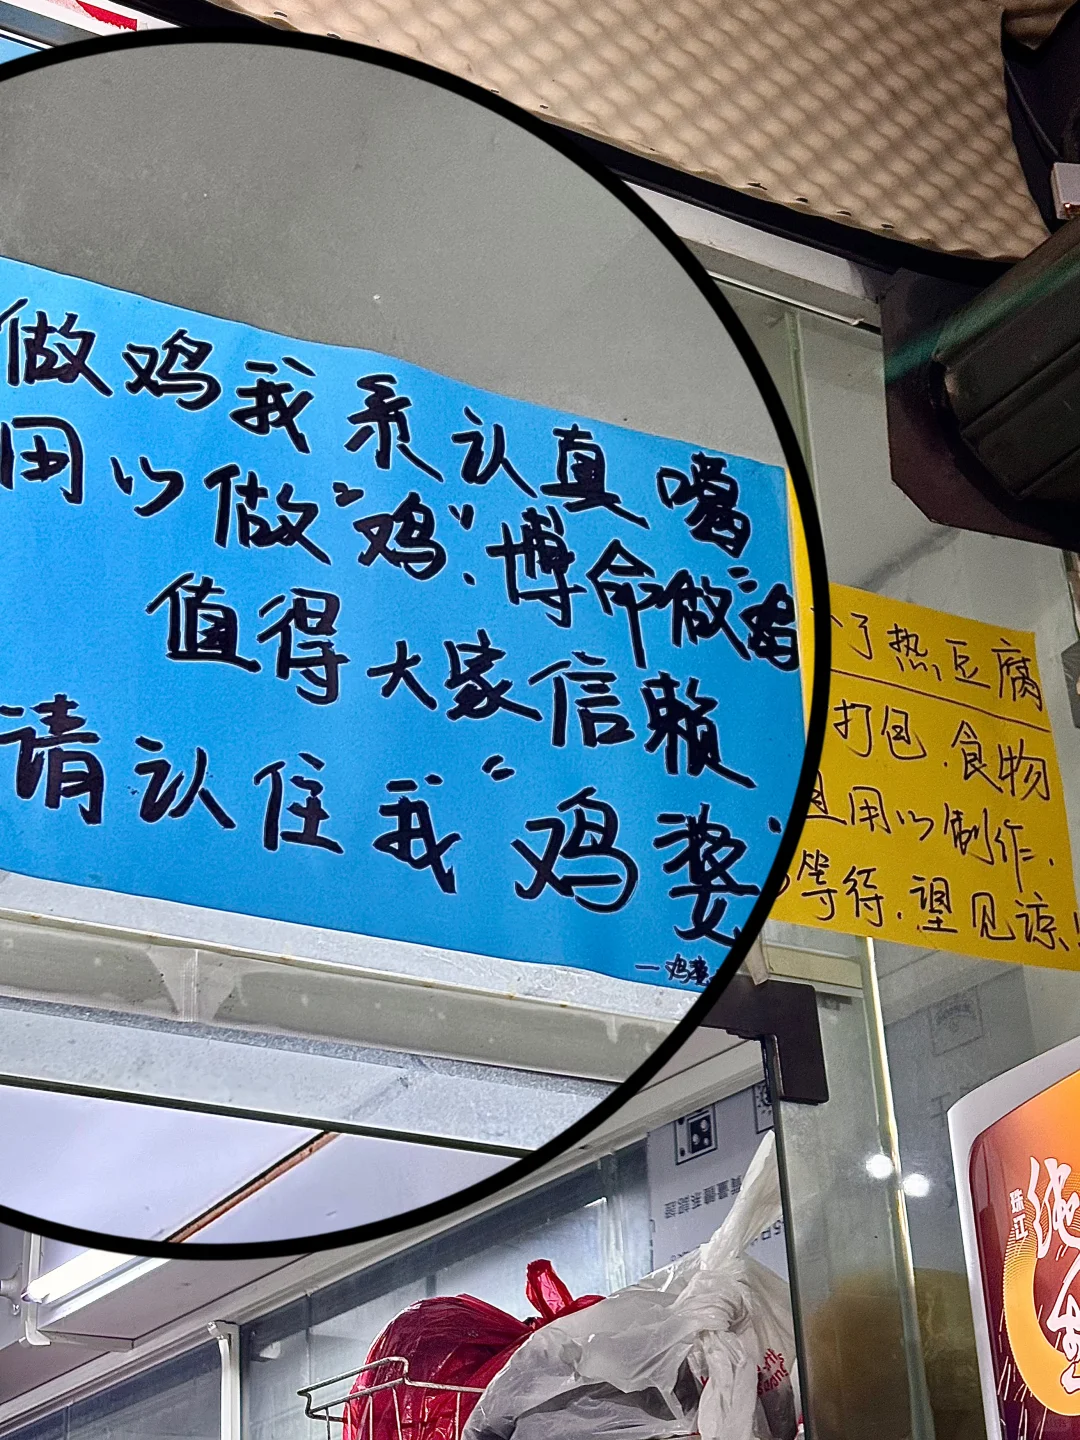 做鸡我系认真嘅
用心做"鸡".博命做"鸡
值得大家信赖
请认住我"鸡婆
一鸡婆
了热豆腐
打包.食物
用心制作.
等待.望见谅!
珠江
纯